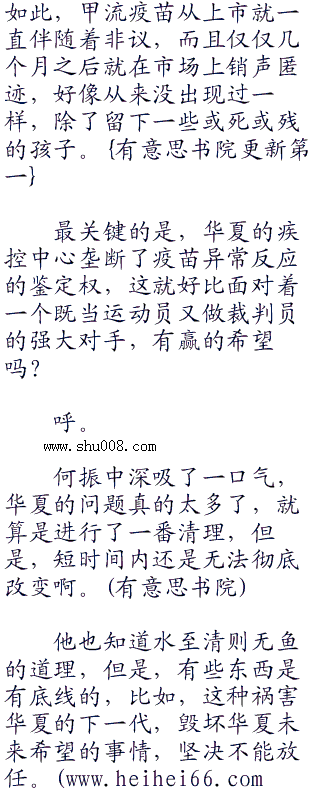 如此，甲流疫苗从上市就一
直伴随着非议，而且仅仅几
个月之后就在市场上销声匿
迹，好像从来没出现过一
样，除了留下一些或死或残
的孩子。{有意思书院更新第
一}
最关键的是，华夏的疾
控中心垄断了疫苗异常反应
的鉴定权，这就好比面对着
一个既当运动员又做裁判员
的强大对手，有赢的希望
吗？
呼。
www.shu008.com
何振中深吸了一口气，
华夏的问题真的太多了，就
算是进行了一番清理，但
是，短时间内还是无法彻底
改变啊。(有意思书院)
他也知道水至清则无鱼
的道理，但是，有些东西是
有底线的，比如，这种祸害
华夏的下一代，毁坏华夏未
来希望的事情，坚决不能放
任。(www.heihei66.com